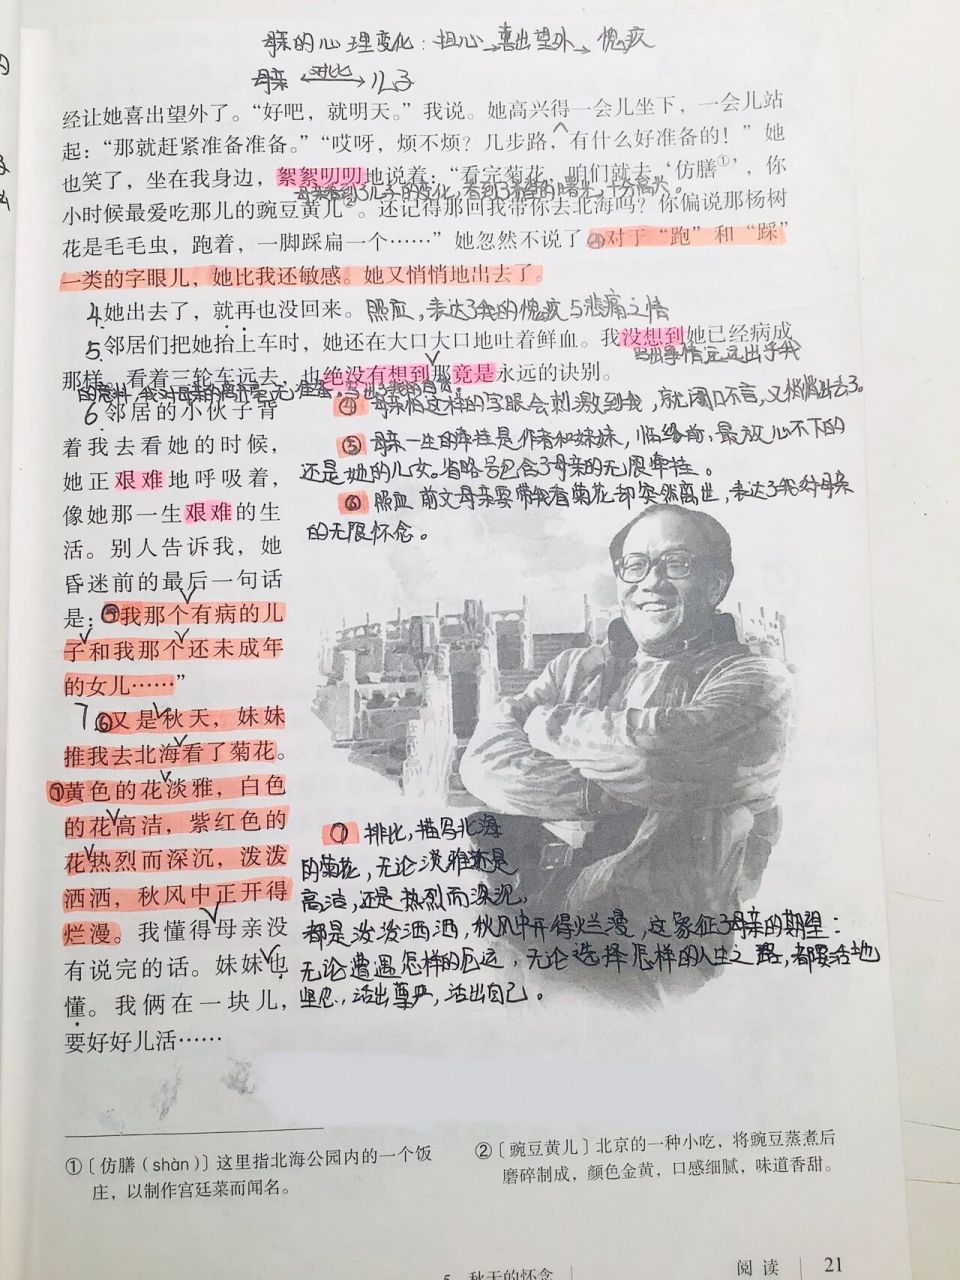 母亲的心理变化：担心→喜出望外→愧疚
母亲 对比 儿子
经让她喜出望外了。“好吧，就明天。”我说。她高兴得一会儿坐下，一会儿站
起：“那就赶紧准备准备。”“哎呀，烦不烦？几步路，有什么好准备的！”她
也笑了，坐在我身边，絮絮叨叨地说着：“看完菊花，咱们就去‘仿膳①’，你
母亲看到了儿子的变化，看到了希望的曙光，十分高兴。
小时候最爱吃那儿的豌豆黄儿②。还记得那回我带你去北海吗？你偏说那杨树
花是毛毛虫，跑着，一脚踩扁一个……”她忽然不说了④对于“跑”和“踩”
一类的字眼儿，她比我还敏感。她又悄悄地出去了。
4.她出去了，就再也没回来。照应，表达了我的愧疚与悲痛之情
5.邻居们把她抬上车时，她还在大口大口地吐着鲜血。我没想到她已经病成
事情远远出乎我
那样。看着三轮车远去，也绝没有想到那竟是永远的诀别。
6.邻居的小伙子背
着我去看她的时候，
她正艰难地呼吸着，
像她那一生艰难的生
活。别人告诉我，她
昏迷前的最后一句话
是：⑤“我那个有病的儿
子和我那个还未成年
的女儿……”
④ 母亲怕这样的字眼会刺激到我，就闭口不言，又悄悄出去了。
⑤ 母亲一生的牵挂是作者和妹妹，临终前，最放心不下的
还是她的儿女。省略号包含了母亲的无限牵挂。
⑥ 照应前文母亲要带我看菊花却突然离世，表达了我对母亲
的无限怀念。
7.⑥又是秋天，妹妹
推我去北海看了菊花。
⑦黄色的花淡雅，白色
的花高洁，紫红色的
花热烈而深沉，泼泼
洒洒，秋风中正开得
烂漫。我懂得母亲没
有说完的话。妹妹也
懂。我俩在一块儿，
要好好儿活……
⑦ 排比，描写北海
的菊花，无论淡雅还是
高洁，还是热烈而深沉，
都是泼泼洒洒，秋风中开得烂漫，这象征了母亲的期望：
无论遭遇怎样的厄运，无论选择怎样的人生之路，都要活地
坚忍，活出尊严，活出自己。
①〔仿膳（shàn）〕这里指北海公园内的一个饭
庄，以制作宫廷菜而闻名。
②〔豌豆黄儿〕北京的一种小吃，将豌豆蒸煮后
磨碎制成，颜色金黄，口感细腻，味道香甜。
5 秋天的怀念
阅读 21